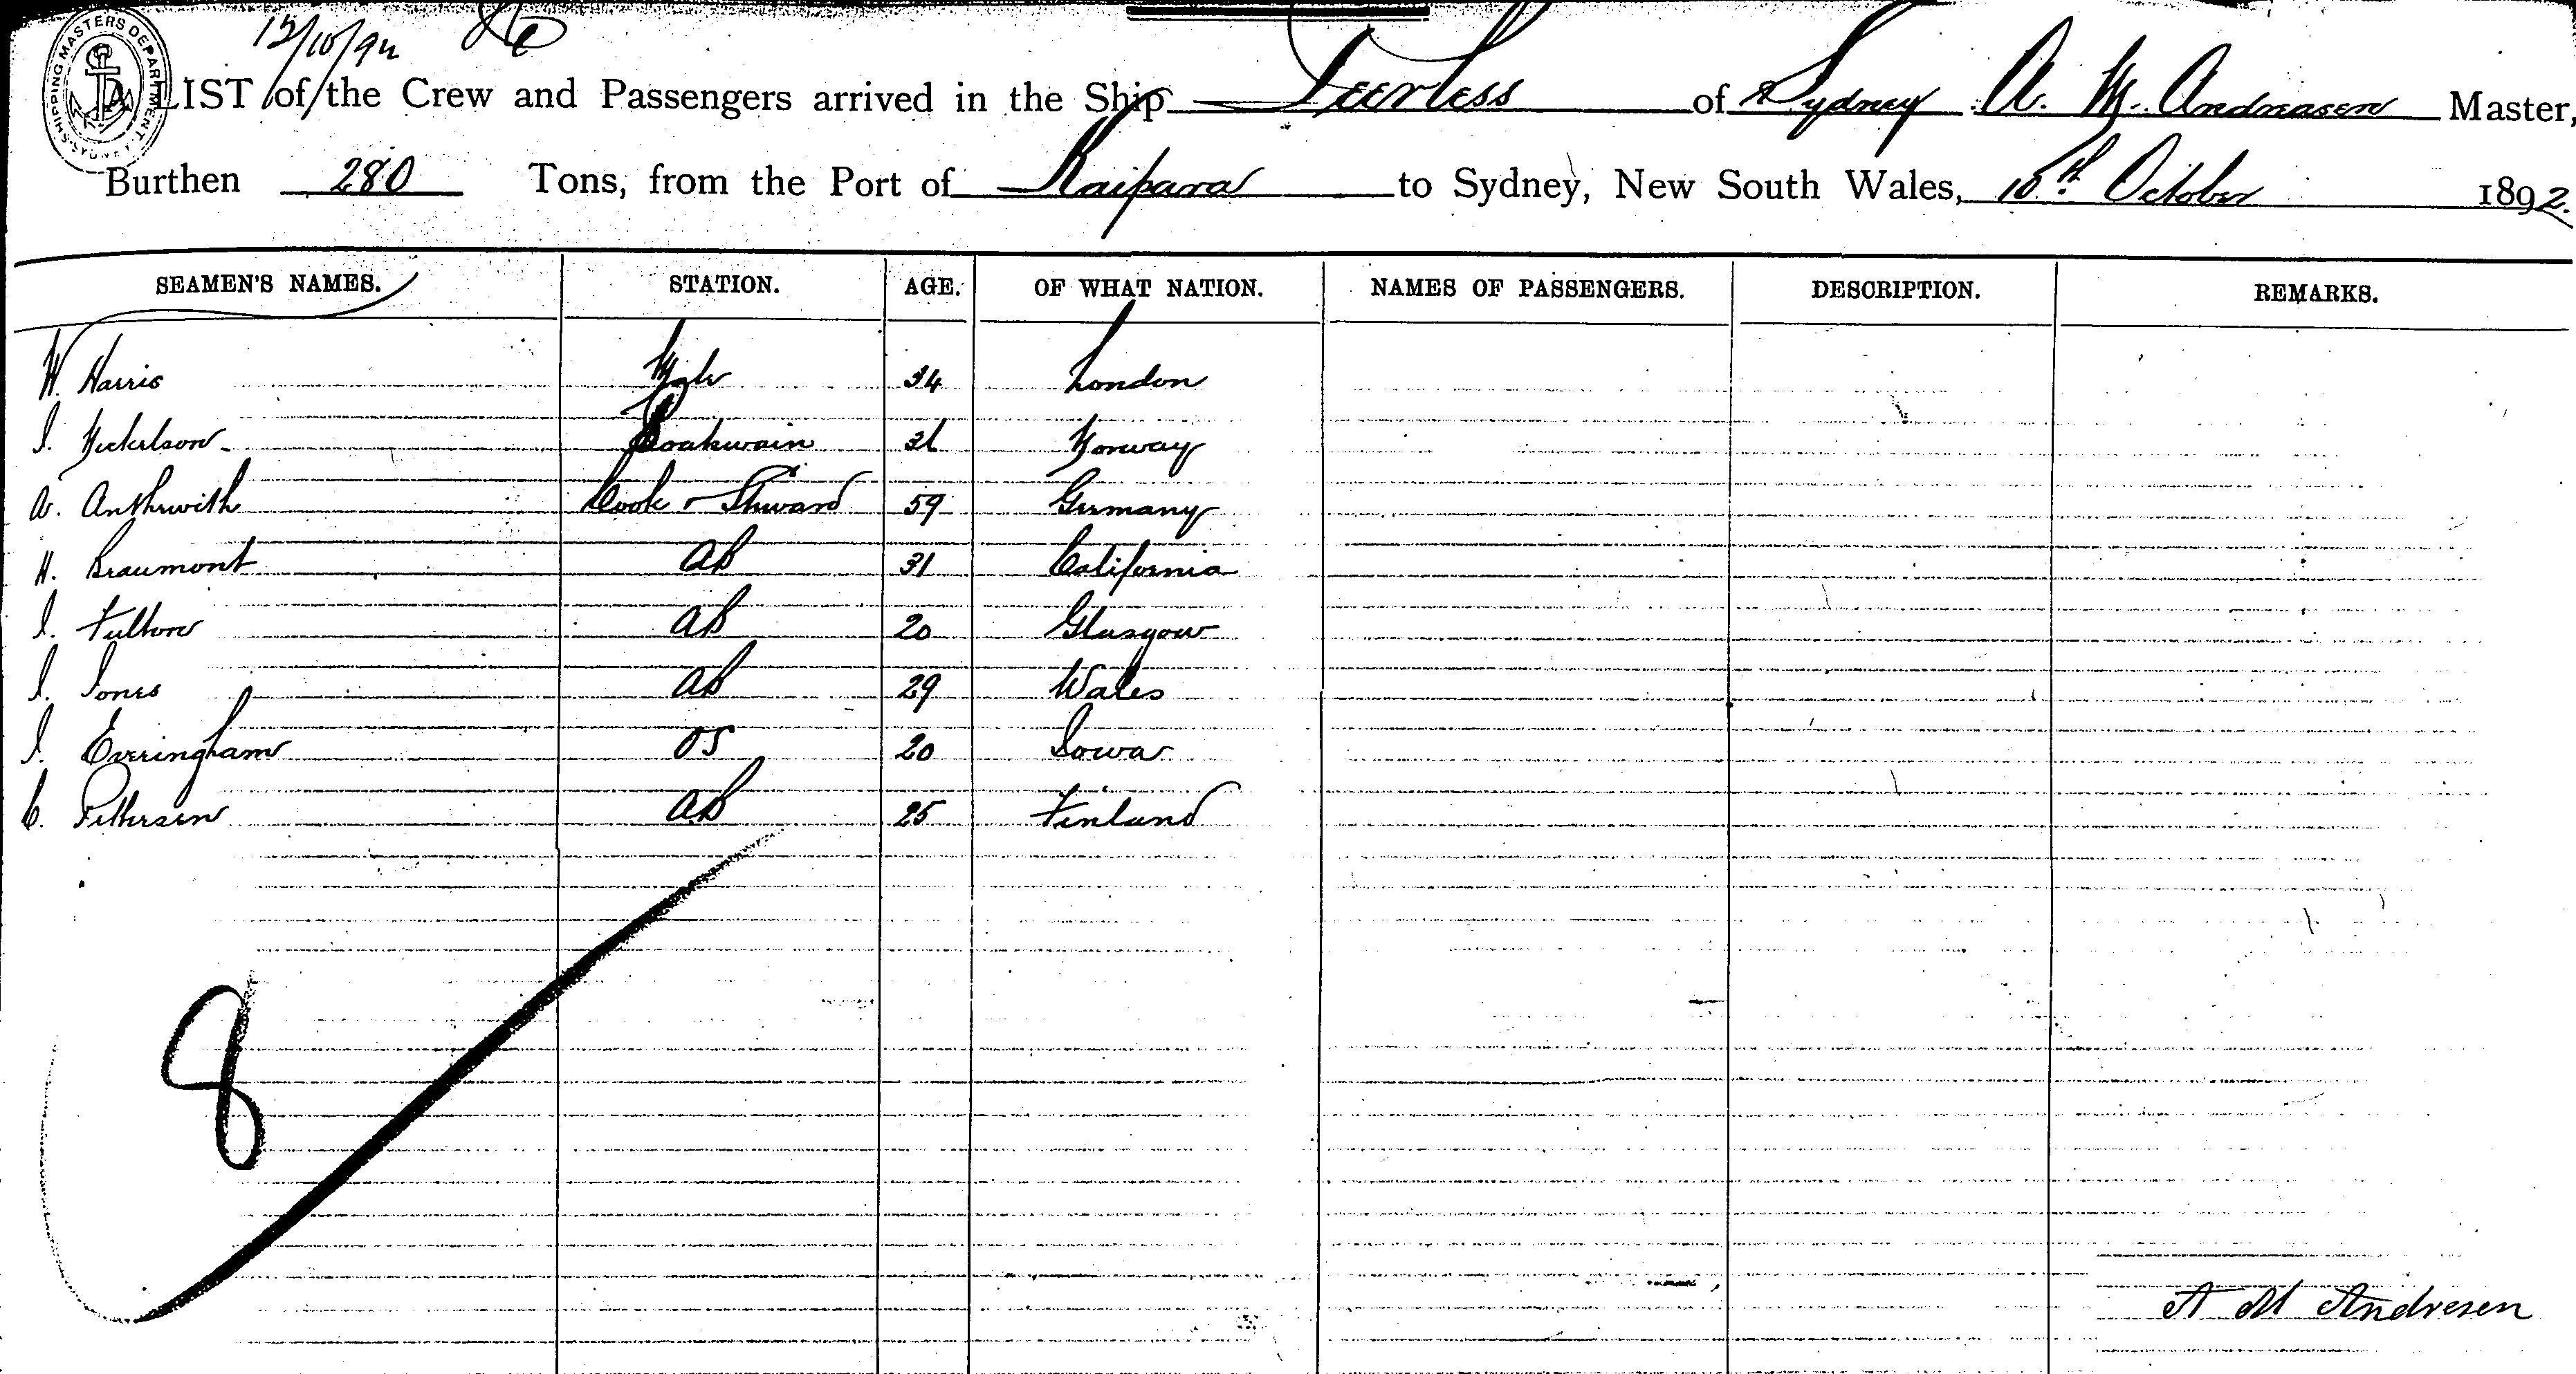 SHIPPING MASTERS DEPARTMENT. SYDNEY
15/10/92
A LIST of the Crew and Passengers arrived in the Ship Peerless of Sydney A. M. Andreasen Master,
Burthen 280 Tons, from the Port of Kaipara to Sydney, New South Wales, 10th October 1892.
SEAMEN'S NAMES. STATION. AGE. OF WHAT NATION. NAMES OF PASSENGERS. DESCRIPTION. REMARKS.
W. Harris Mate 34 London
J. Boatswain Norway
A. Cook & Steward 59 Germany
H. Beaumont AB 31 California
J. Fulton AB 20 Glasgow
J. Jones AB 29 Wales
J. Everingham OS 20 Iowa
C. Pettersen AB 25 Finland
8
A M Andresen